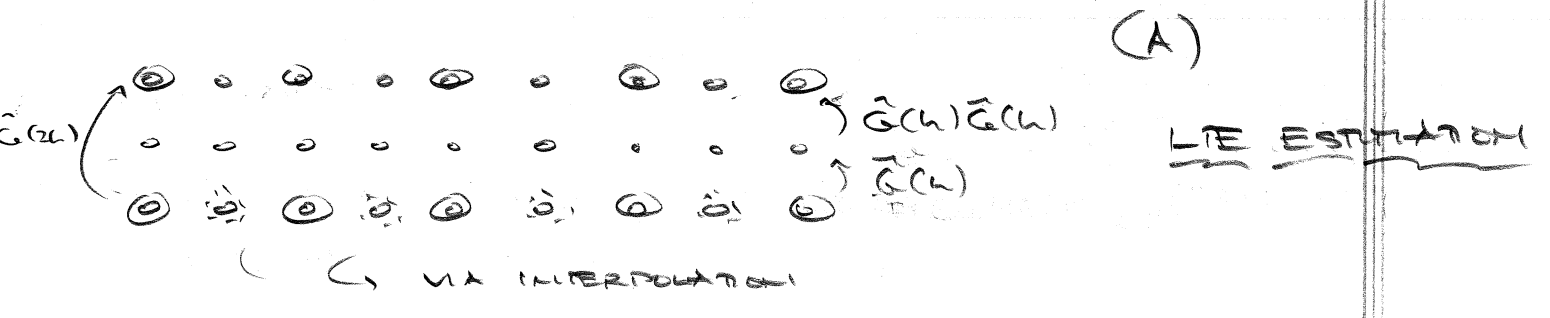 (A)
Ĝ(2h)
Ĝ(h)Ĝ(h)
LTE ESTIMATION
Ĝ(h)
VIA INTERPOLATION